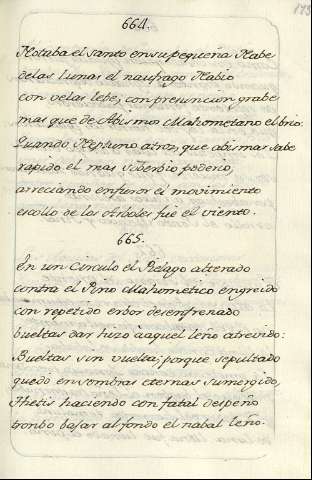 173
664.
Notaba el santo en su pequeña Nabe
de las lunas el naufrago Nabio
con velas lebe, con presuncion grabe
mas que de Abismos Mahometano el brio.
Quando Neptuno atroz, que abismar sabe
rapido el mas soberbio poderio,
arreciando en furor el movimiento
escollo de los Arboles fue el viento.
665.
En un Circulo el Pielago alterado
contra el Pino Mahometico engreido
con repetido erbor desenfrenado
bueltas dar hizo àaquel leño atrevido:
Bueltas sin vuelta; porque sepultado
quedò en sombras eternas sumergido,
Thetis haciendo con fatal despeño
trombo bajar al fondo el nabal leño.